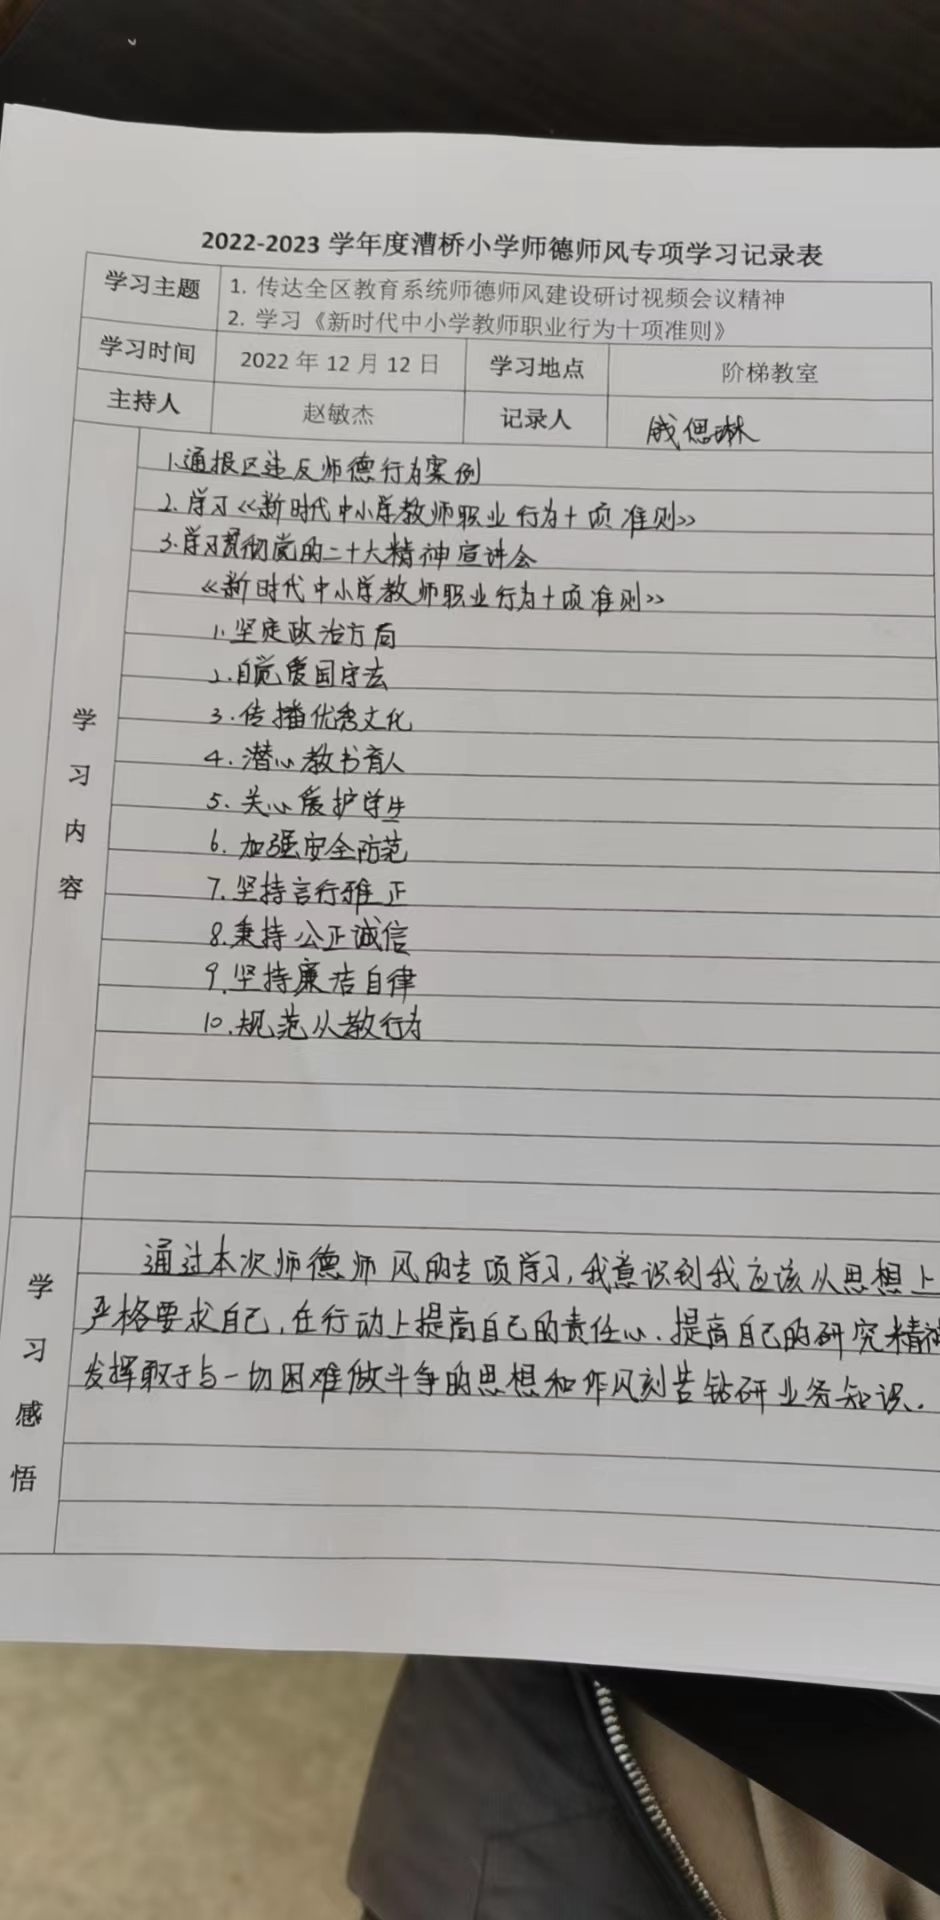 2022-2023 学年度漕桥小学师德师风专项学习记录表
学习主题
1. 传达全区教育系统师德师风建设研讨视频会议精神
2. 学习《新时代中小学教师职业行为十项准则》
学习时间 2022 年 12 月 12 日 学习地点 阶梯教室
主持人 赵敏杰 记录人 偲琳
学习内容
1.通报区违反师德行为案例
2.学习《新时代中小学教师职业行为十项准则》
3.学习贯彻党的二十大精神宣讲会
《新时代中小学教师职业行为十项准则》
1.坚定政治方向
2.自觉爱国守法
3.传播优秀文化
4.潜心教书育人
5.关心爱护学生
6.加强安全防范
7.坚持言行雅正
8.秉持公正诚信
9.坚持廉洁自律
10.规范从教行为
学习感悟
通过本次师德师风的专项学习,我意识到我应该从思想上
严格要求自己,在行动上提高自己的责任心、提高自己的研究精神
发挥敢于与一切困难做斗争的思想和作风刻苦钻研业务知识.